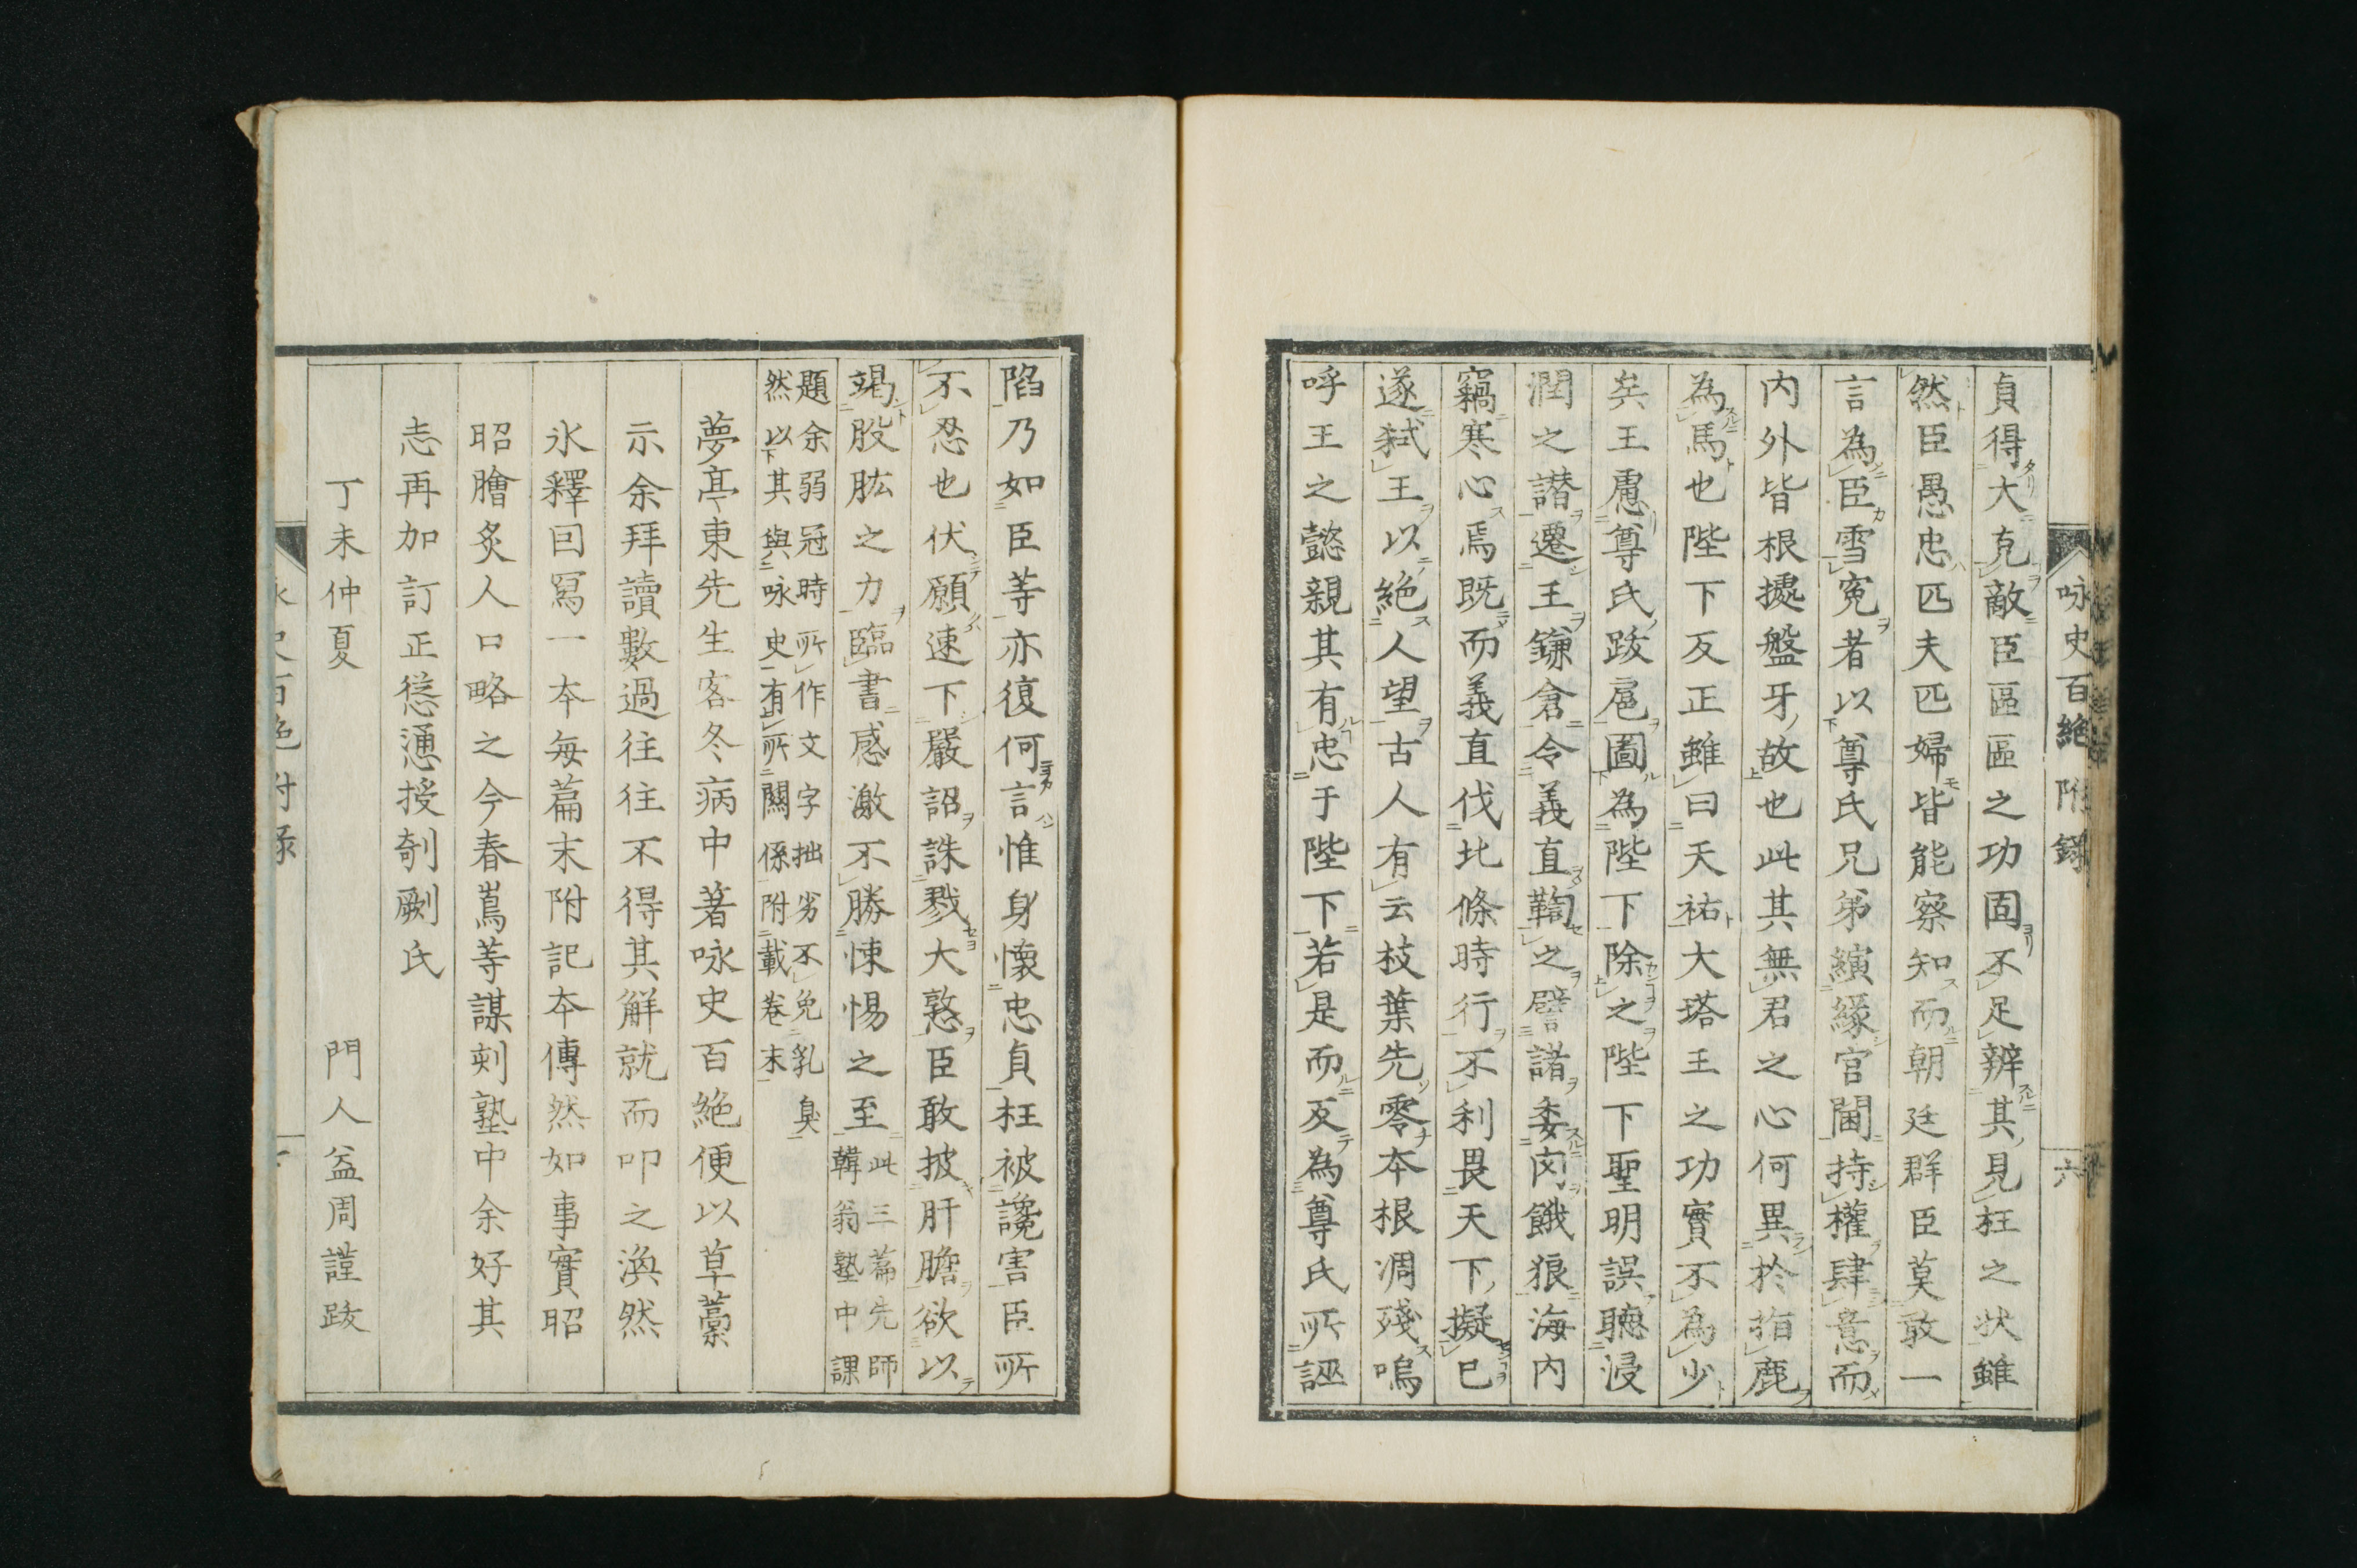 咏史百絶 附錄 六
貞得大克敵臣區區之功固不足辨其見枉之状雖
然臣愚忠匹夫匹婦皆能察知而朝廷群臣莫敢一
言為臣雪寃者以尊氏兄弟縯緣官閫持權肆意而
内外皆根據盤牙故也此其無君之心何異於指鹿
為馬也陛下反正雖曰天祐大塔王之功實不為少
矣王慮尊氏跋扈圖為陛下除之陛下聖明誤聽浸
潤之譖遷王鎌倉令義直鞫之譬諸委肉餓狼海内
竊寒心焉既而義直伐北條時行不利畏天下擬已
遂弑王以絶人望古人有云枝葉先零本根凋殘嗚
呼王之懿親其有忠于陛下若是而反為尊氏所誣
陷乃如臣等亦復何言惟身懐忠貞枉被讒害臣所
不忍也伏願速下嚴詔誅戮大憝臣敢披肝膽欲以
竭股肱之力臨書感激不勝悚惕之至 此三篇先師
韓翁塾中課
題余弱冠時所作文字拙劣不免乳臭
然以其與咏史有所關係附載卷末
夢亭東先生客冬病中著咏史百絶便以草藁
示余拜讀數過往往不得其解就而叩之渙然
氷釋回寫一本每篇末附記本傳然如事實昭
昭膾炙人口略之今春嵩等謀刻塾中余好其
志再加訂正慫慂授剞劂氏
丁未仲夏
門人益周謹跋
咏史百絶附錄